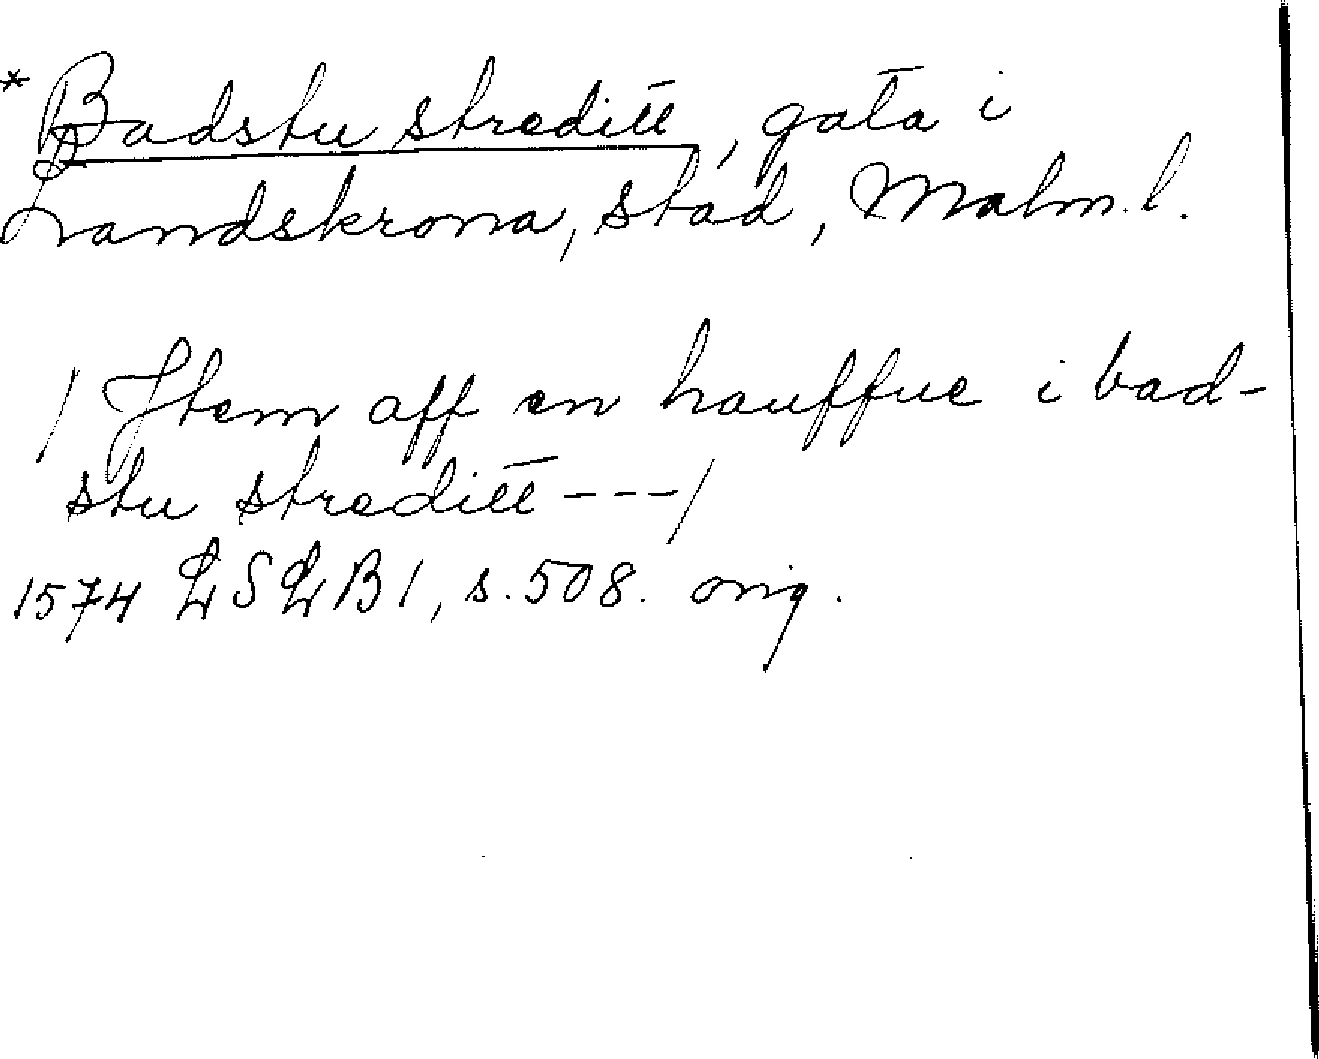 *Badstu streditt, gata i
Landskrona, stad, Malm. l.
/ Jtem aff en hauffue i bad-
stu streditt - - - /
1574 LSLB 1, s. 508. orig.